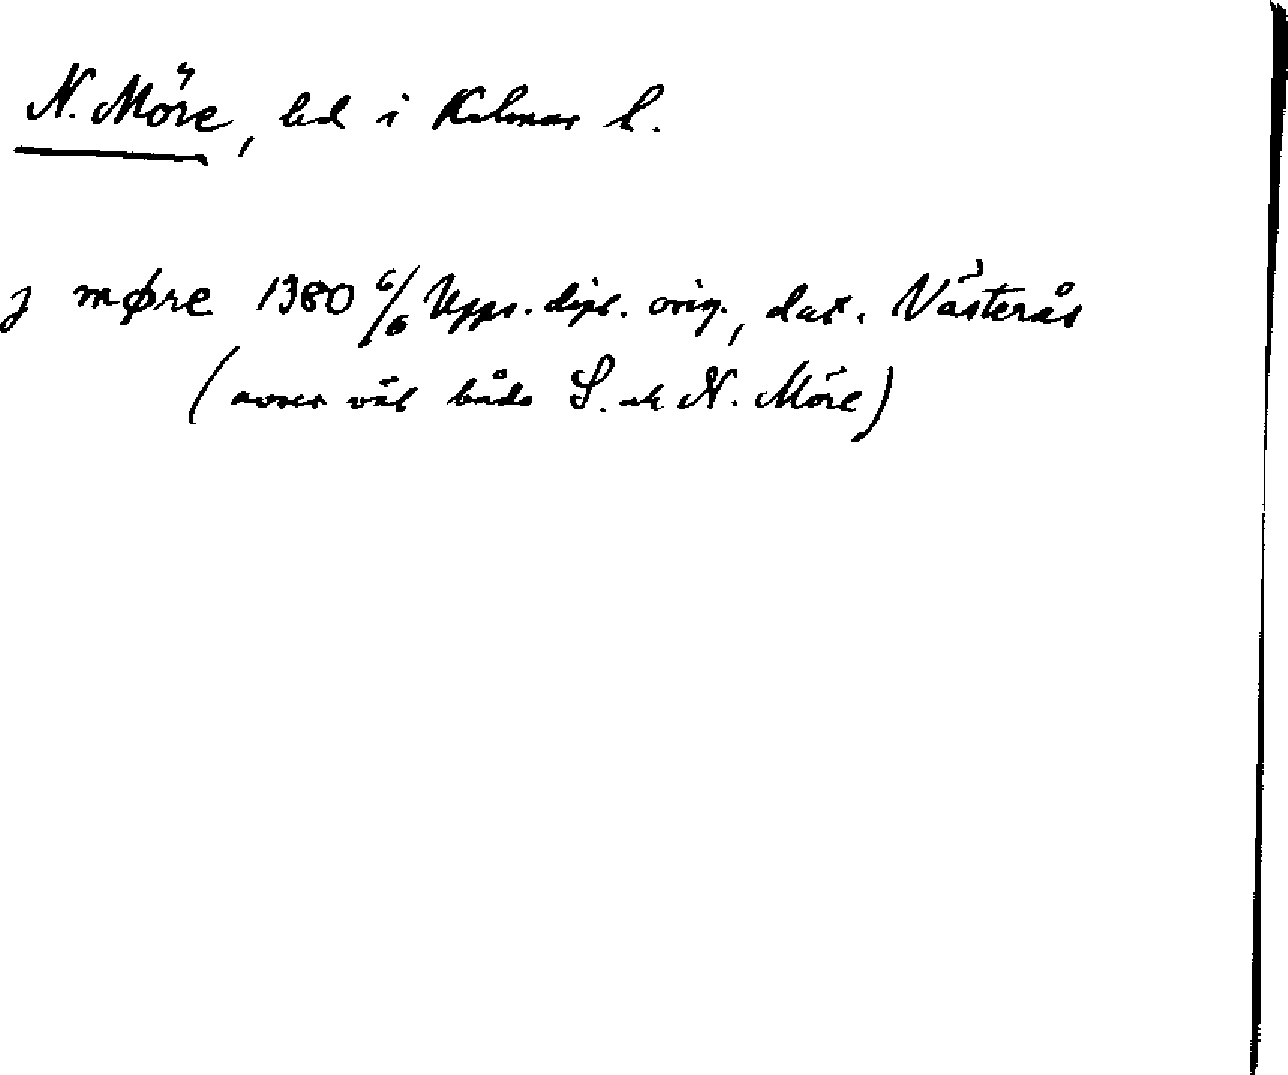 N. Möre, hd i Kalmar l.
j møre 1380 6/6 Upps. dipl. orig., dat. Västerås
(avser väl både S. ok N. Möre)